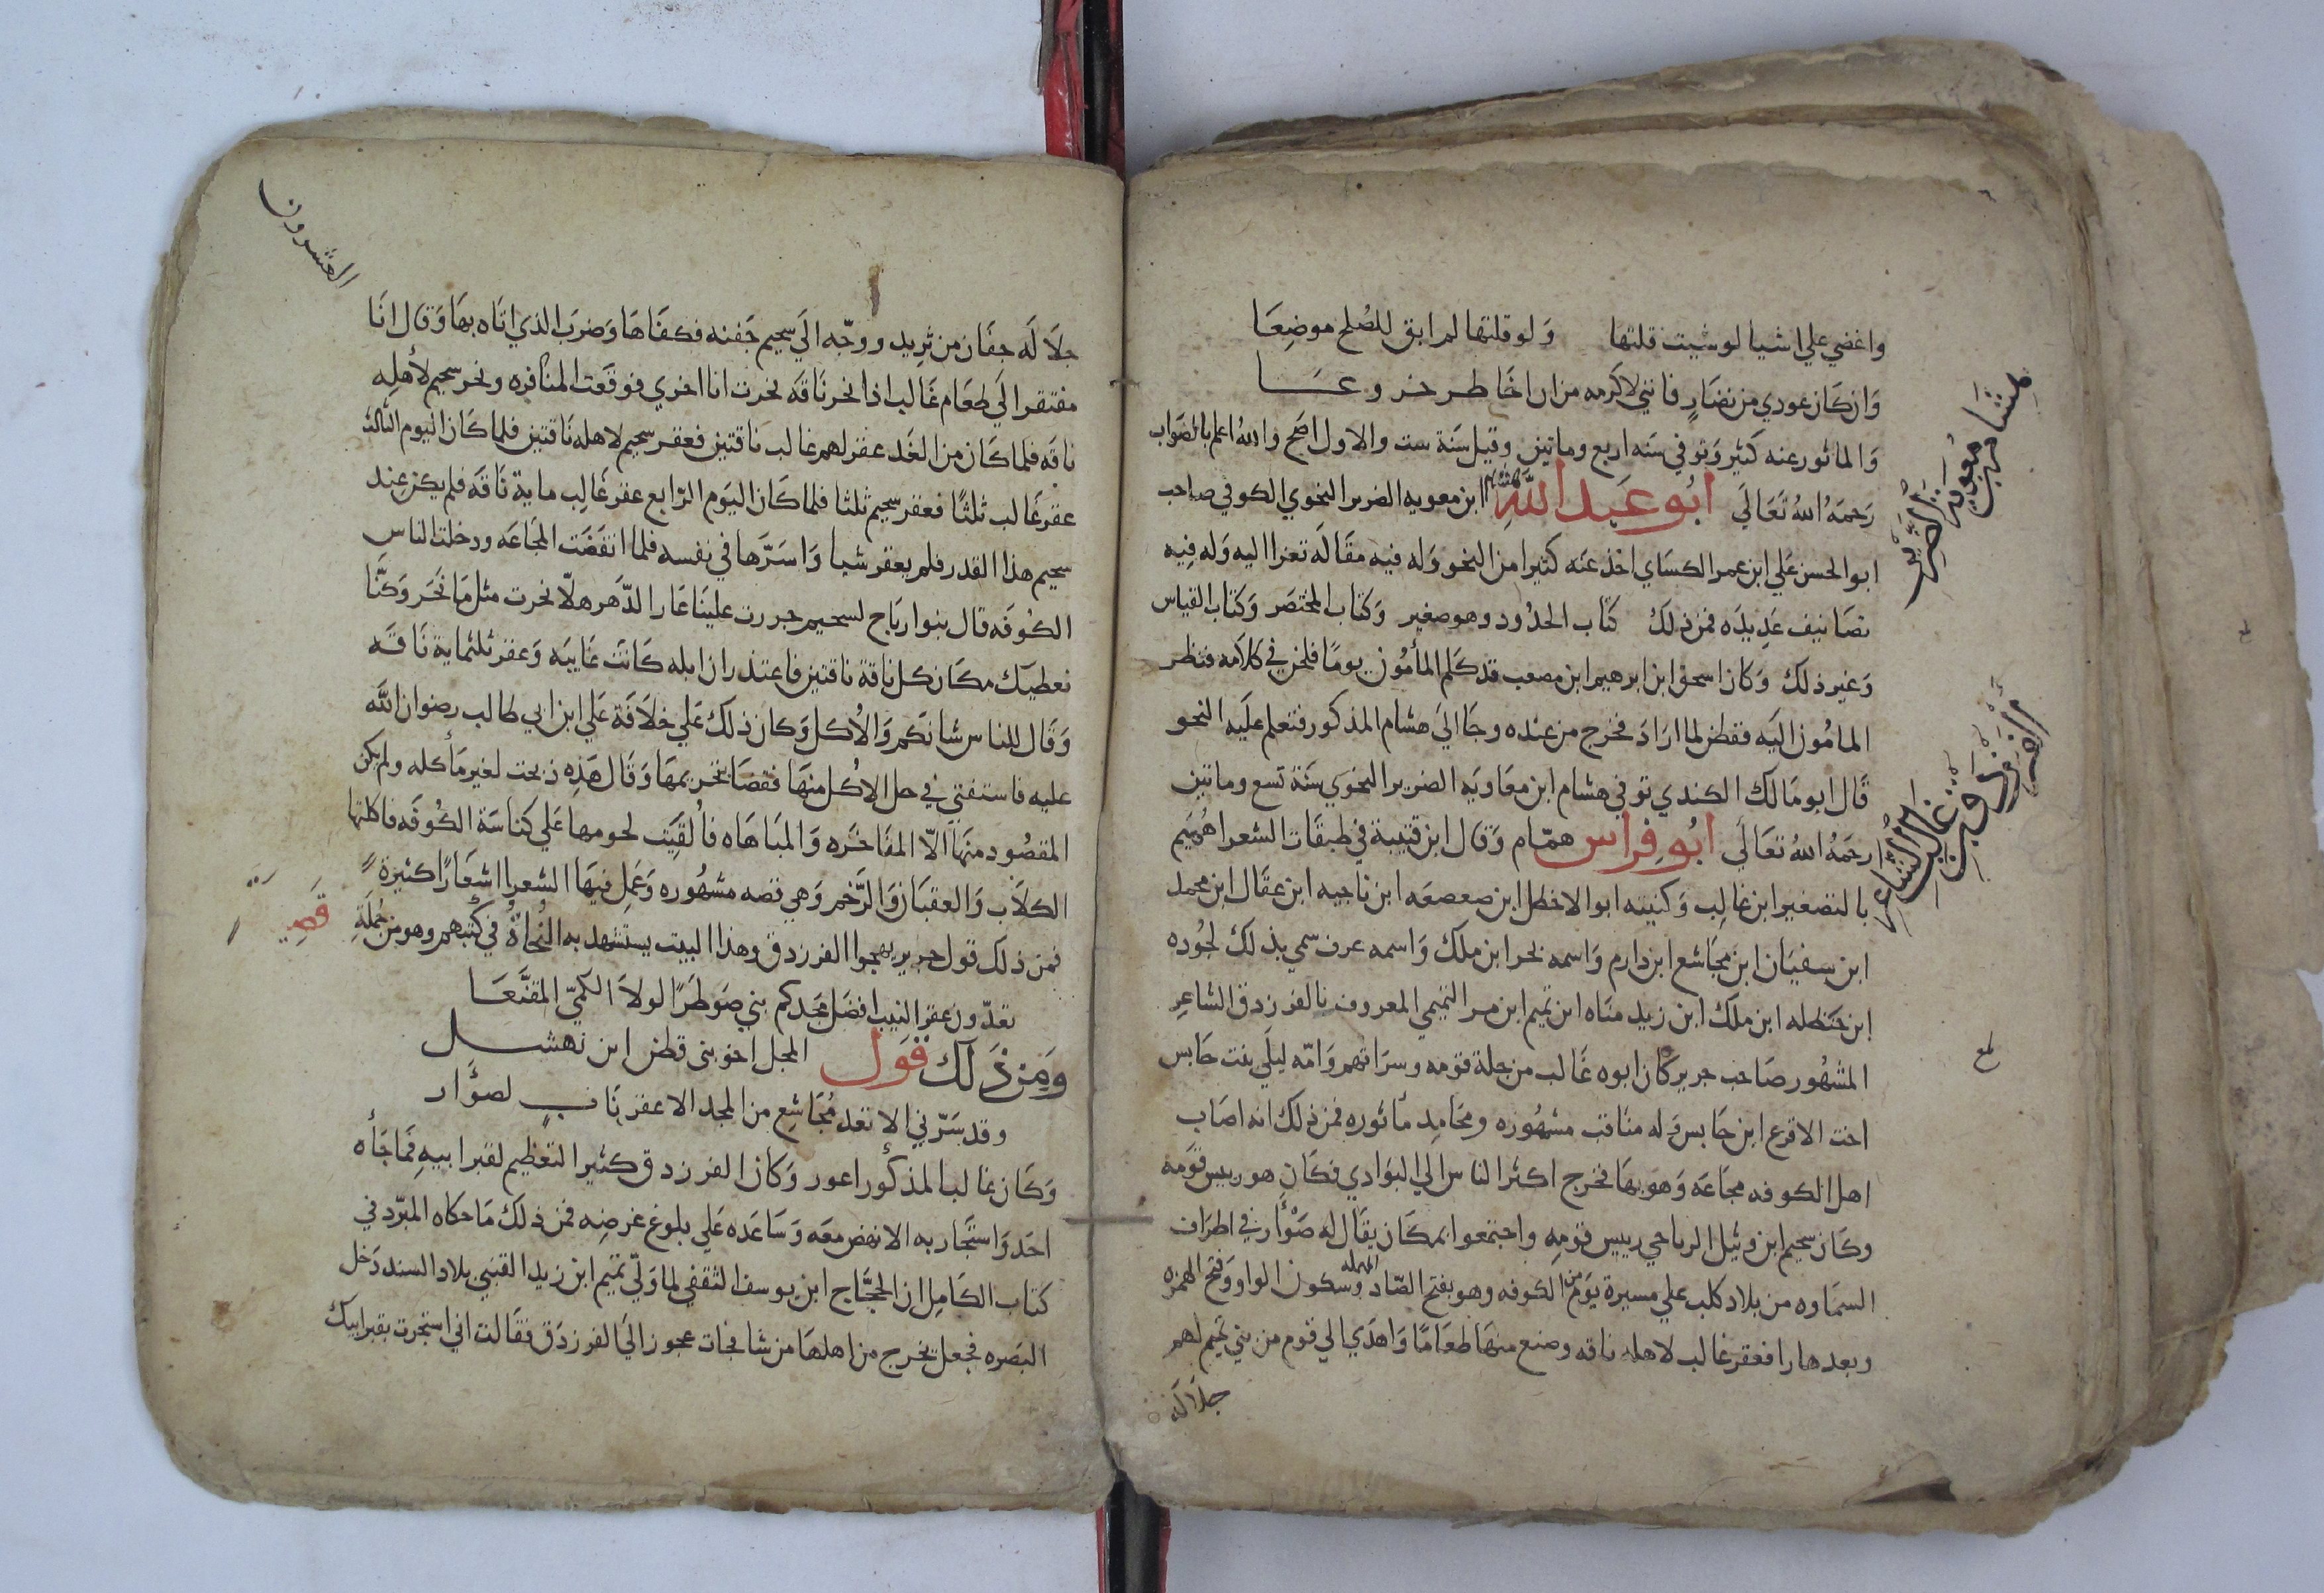 واغضي علي اشيا لو شيت قلتها ولو قلتها لم ابق للصلح موضعا
وان كان عودي من نضار فانني لاكرمه من ان اخاطر خروعا
والماثور عنه كثير وتوفي سنه اربع وماتين وقيل سنة ست والاول اصح والله اعلم بالصواب
رحمه الله تعالي ابو عبد الله هشام ابن معويه الضرير النحوي الكوفي صاحب
هشام بن معوية الضرير
ابو الحسن علي ابن عمر الكساي اخذ عنه كثيرا من النحو وله فيه مقاله تعزا اليه وله فيه
تصانيف عديده فمن ذلك كتاب الحدود وهو صغير وكتاب المختصر وكتاب القياس
وغير ذلك وكان اسحق ابن ابرهيم ابن مصعب قد كلم المأمون يوما فلحن في كلامه فنظر
المامون اليه ففطن لما اراد فخرج من عنده وجا الي هشام المذكور فتعلم عليه النحو
قال ابو مالك الكندي توفي هشام ابن معاويه الضرير النحوي سنة تسع وماتين
رحمه الله تعالي ابو فراس همام وقال ابن قتيبة في طبقات الشعرا هميم
بالتصغير ابن غالب وكنيته ابو الاخطل ابن صعصعه ابن ناجيه ابن عقال ابن محمد
ابن سفيان ابن مجاشع ابن دارم واسمه بحر ابن ملك واسمه عرف سمي بذلك لجوده
ابن حنظله ابن ملك ابن زيد مناه ابن تميم ابن مر التميمي المعروف بالفرزدق الشاعر
المشهور صاحب جرير كان ابوه غالب من جلة قومه وسراتهم وامه ليلي بنت حابس
اخت الاقرع ابن حابس وله مناقب مشهوره ومحامد مأثوره فمن ذلك انه اصاب
اهل الكوفه مجاعه وهو بها فخرج اكثر الناس الي البوادي فكان هو رييس قومه
وكان سحيم ابن وثيل الرياحي رييس قومه واجتمعوا بمكان يقال له صوأر في اطراف
السماوه من بلاد كلب علي مسيرة يوم من الكوفه وهو بفتح الصاد المهمله وسكون الواو وفتح الهمزه
وبعدها را فعقر غالب لاهله ناقه وصنع منها طعاما واهدي الي قوم من بني تميم لهم
جلاله
العشرون
جلاله جفان من ثريد ووجه الي سحيم جفنه فكفاها وضرب الذي اتاه بها وقال انا
مفتقر الي طعام غالب اذا نحر ناقه نحرت انا اخري فوقعت المنافره ونحر سحيم لأهله
ناقه فلما كان من الغد عقر لهم غالب ناقتين فعقر سحيم لاهله ناقتين فلما كان اليوم الثالث
عقر غالب ثلثا فعقر سحيم ثلثا فلما كان اليوم الرابع عقر غالب ماية ناقه فلم يكن عند
سحيم هذا القدر فلم يعقر شيا واسرها في نفسه فلما انقضت المجاعه ودخلت الناس
الكوفه قال بنوا رياح لسحيم جررت علينا عار الدهر هلا نحرت مثل ما نحر وكنا
نعطيك مكان كل ناقة ناقتين فاعتذر ان ابله كانت غايبه وعقر ثلثماية ناقه
وقال للناس شانكم والاكل وكان ذلك علي خلافة علي ابن ابي طالب رضوان الله
عليه فاستفتي في حل الاكل منها فقضا بتحريمها وقال هذه ذبحت لغير مأكله ولم يكن
المقصود منها الا المفاخره والمباهاه فألقيت لحومها علي كناسة الكوفه فاكلتها
الكلاب والعقبان والرخم وهي قصه مشهوره وعمل فيها الشعرا اشعارا كثيرة
فمن ذلك قول جرير يهجوا الفرزدق وهذا البيت يستشهد به النحاة في كتبهم وهو من جملة قصيـ
تعدون عقر النيب افضل مجدكم بني ضوطرا لولا الكمي المقنعا
ومن ذلك قول المجل اخو بني قطن ابن نهشل
وقد سرني الا تعد مجاشع من المجد الا عقر ناب لصوأر
وكان غالب المذكور اعور وكان الفرزدق كثير التعظيم لقبر ابيه فما جأه
احد واستجار به الا نهض معه وساعده علي بلوغ غرضه فمن ذلك ما حكاه المبرد في
كتاب الكامل ان الحجاج ابن يوسف الثقفي لما ولي تميم ابن زيد القيني بلاد السند دخل
البصره فجعل يخرج من اهلها من شا فجات عجوز الي الفرزدق فقالت اني استجرت بقبر ابيك